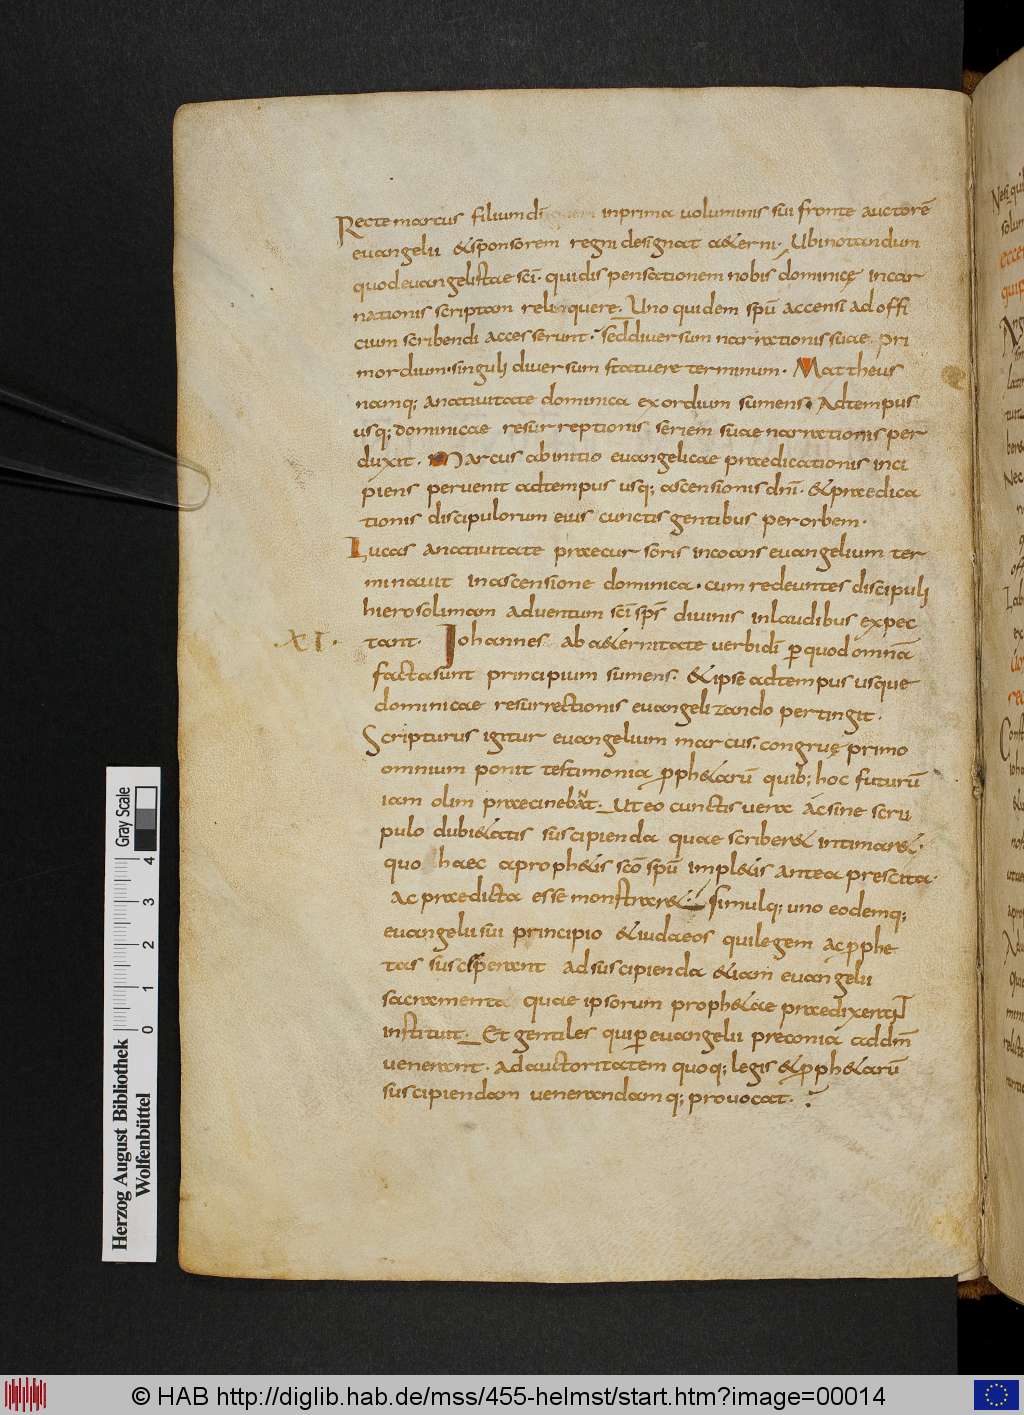 Recte marcus filium dī inprima uoluminis sui fronte auctorē
euangelii &sponsorem regni designat a&erni. Ubi notandum
quod euangelistae sci͞. qui dispensationem nobis dominicę incar
nationis scriptam relinquere. Uno quidem sp͞u accensi ad offi
cium scribendi accesserunt. sed diuersum narrationis suae pri
mordium. singuli diuersum statuere terminum. Mattheus
namq; anatiuitate dominica exordium sumens. Adtempus
usq; dominicae resurreptionis seriem suae narrationis per
duxit. Marcus abinitio euangelicae praedicationis inci
piens peruenit adtempus usq; ascensionis dn͞i. &praedica
tionis discipulorum eius cunctis gentibus per orbem.
Lucas anatiuitate praecursoris incoans euangelium ter
minauit inascensione dominica. cum redeuntes discipuli
hierosolimam aduentum sc͞i sp͞s diuinis inlaudibus expec
.XI. tant. Iohannes ab a&ernitate uerbi dī ꝑ quod omnia
facta sunt principium sumens. &ipse adtempus usque
dominicae resurrectionis euangelizando pertingit.
Scripturus igitur euangelium marcus. congruę primo
omnium ponit testimonia ꝓph&arū quib; hoc futurū
iam olim praecinebat. Ut eo cunctis uera ac sine scru
pulo dubi&atis suscipienda quae scriber& intimar&.
quo haec aproph&is sc͞o sp͞u impl&is antea prescita.
Ac praedicta esse monstrar&. Simulq; uno eodemq;
euangelii sui principio &iudaeos qui legem ac ꝓphe
tas susceperant ad suscipienda &iam euangelii
sacramenta quae ipsorum proph&ae praedixerant
instituit. Et gentiles qui ꝑ euangelii preconia ad dn͞m
uenerant. Adauctoritatem quoq; legis &ꝓph&arū
suscipiendam uenerandamq; prouocat.
Gray Scale
0 1 2 3 4
Herzog August Bibliothek
Wolfenbüttel
© HAB http://diglib.hab.de/mss/455-helmst/start.htm?image=00014